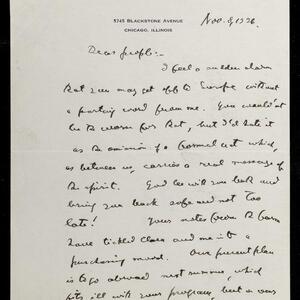 5745 BLACKSTONE AVENUE
CHICAGO, ILLINOIS
Nov. 8, 1926.
Dear people:-
I feel a sudden alarm
that you may get off to Europe without
a parting word from me. You wouldn't
be the worse for that, but I'd hate it
as the omission of a formal act which,
as between us, carries a real message of
the spirit. God be with you both and
bring you back safe and not too
late! Your notes from the
have tickled Clara and me into a
purchasing mood. Our present plan
is to go abroad next summer, which
fits ill with your program, but a